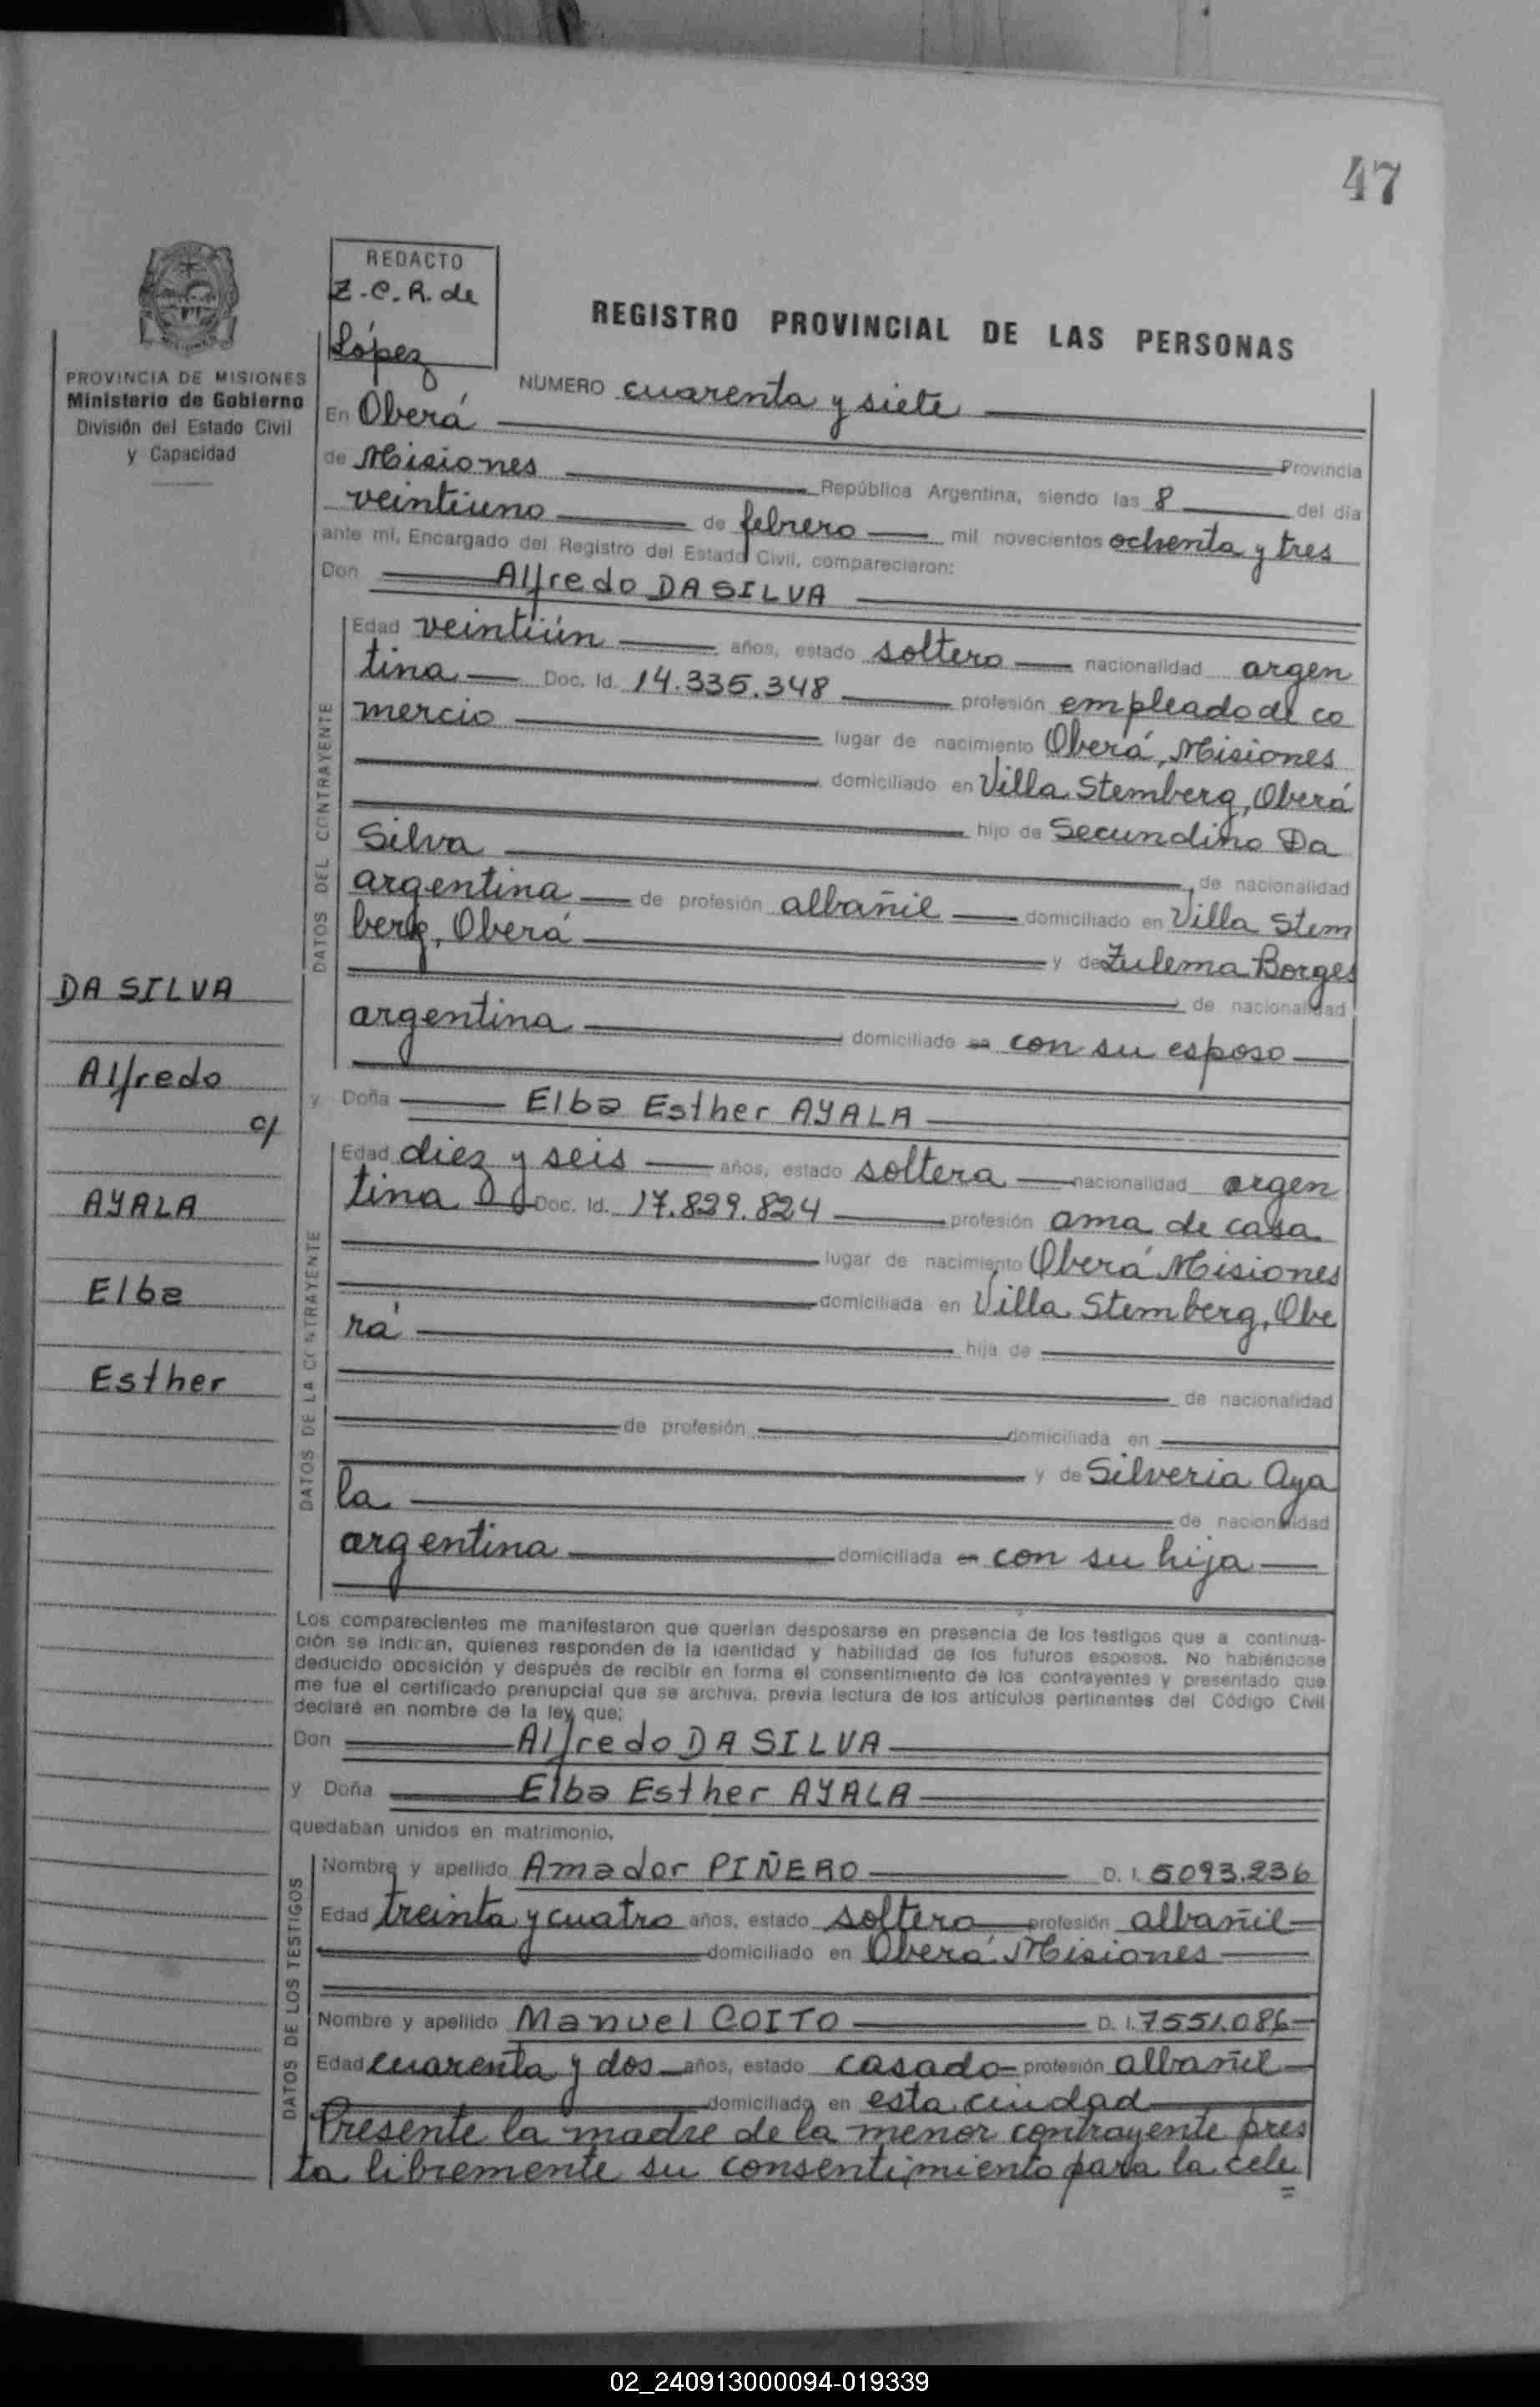 47
REDACTO
Z.C.R. de
López
REGISTRO PROVINCIAL DE LAS PERSONAS
PROVINCIA DE MISIONES
Ministerio de Gobierno
División del Estado Civil
y Capacidad
NUMERO cuarenta y siete
En Oberá Provincia
de Misiones República Argentina, siendo las 8 del día
veintiuno de febrero mil novecientos ochenta y tres
ante mí, Encargado del Registro del Estado Civil, comparecieron:
Don Alfredo DA SILVA
DATOS DEL CONTRAYENTE
Edad veintiún años, estado soltero nacionalidad argen
tina Doc. Id. 14.335.348 profesión empleado de co
mercio lugar de nacimiento Oberá, Misiones
domiciliado en Villa Stemberg, Oberá
hijo de Secundino Da
Silva de nacionalidad
argentina de profesión albañil domiciliado en Villa Stem
berg, Oberá y de Zulema Borges
de nacionalidad
argentina domiciliado en con su esposo
DA SILVA
Alfredo
c/
AYALA
Elba
Esther
y Doña Elba Esther AYALA
DATOS DE LA CONTRAYENTE
Edad diez y seis años, estado soltera nacionalidad argen
tina Doc. Id. 17.829.824 profesión ama de casa
lugar de nacimiento Oberá Misiones
domiciliada en Villa Stemberg, Obe
rá hija de
de nacionalidad
de profesión domiciliada en
y de Silveria Aya
la de nacionalidad
argentina domiciliada en con su hija
Los comparecientes me manifestaron que querían desposarse en presencia de los testigos que a continua-
ción se indican, quienes responden de la identidad y habilidad de los futuros esposos. No habiéndose
deducido oposición y después de recibir en forma el consentimiento de los contrayentes y presentado que
me fue el certificado prenupcial que se archiva, previa lectura de los artículos pertinentes del Código Civil
declaré en nombre de la ley que:
Don Alfredo DA SILVA
y Doña Elba Esther AYALA
quedaban unidos en matrimonio.
DATOS DE LOS TESTIGOS
Nombre y apellido Amador PIÑERO D. I. 5093.236
Edad treinta y cuatro años, estado soltero profesión albañil
domiciliado en Oberá Misiones
Nombre y apellido Manuel COITO D. I. 7551.086
Edad cuarenta y dos años, estado casado profesión albañil
domiciliado en esta ciudad
Presente la madre de la menor contrayente pres
ta libremente su consentimiento para la cele
=
02_240913000094-019339